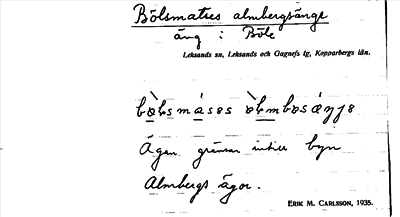 Bölsmatses almbergsänge
äng i Böle
Leksands sn, Leksands och Gagnefs tg, Kopparbergs län.
Ägan gränsar intill byn
Almbergs ägor.
ERIK M. CARLSSON, 1935.